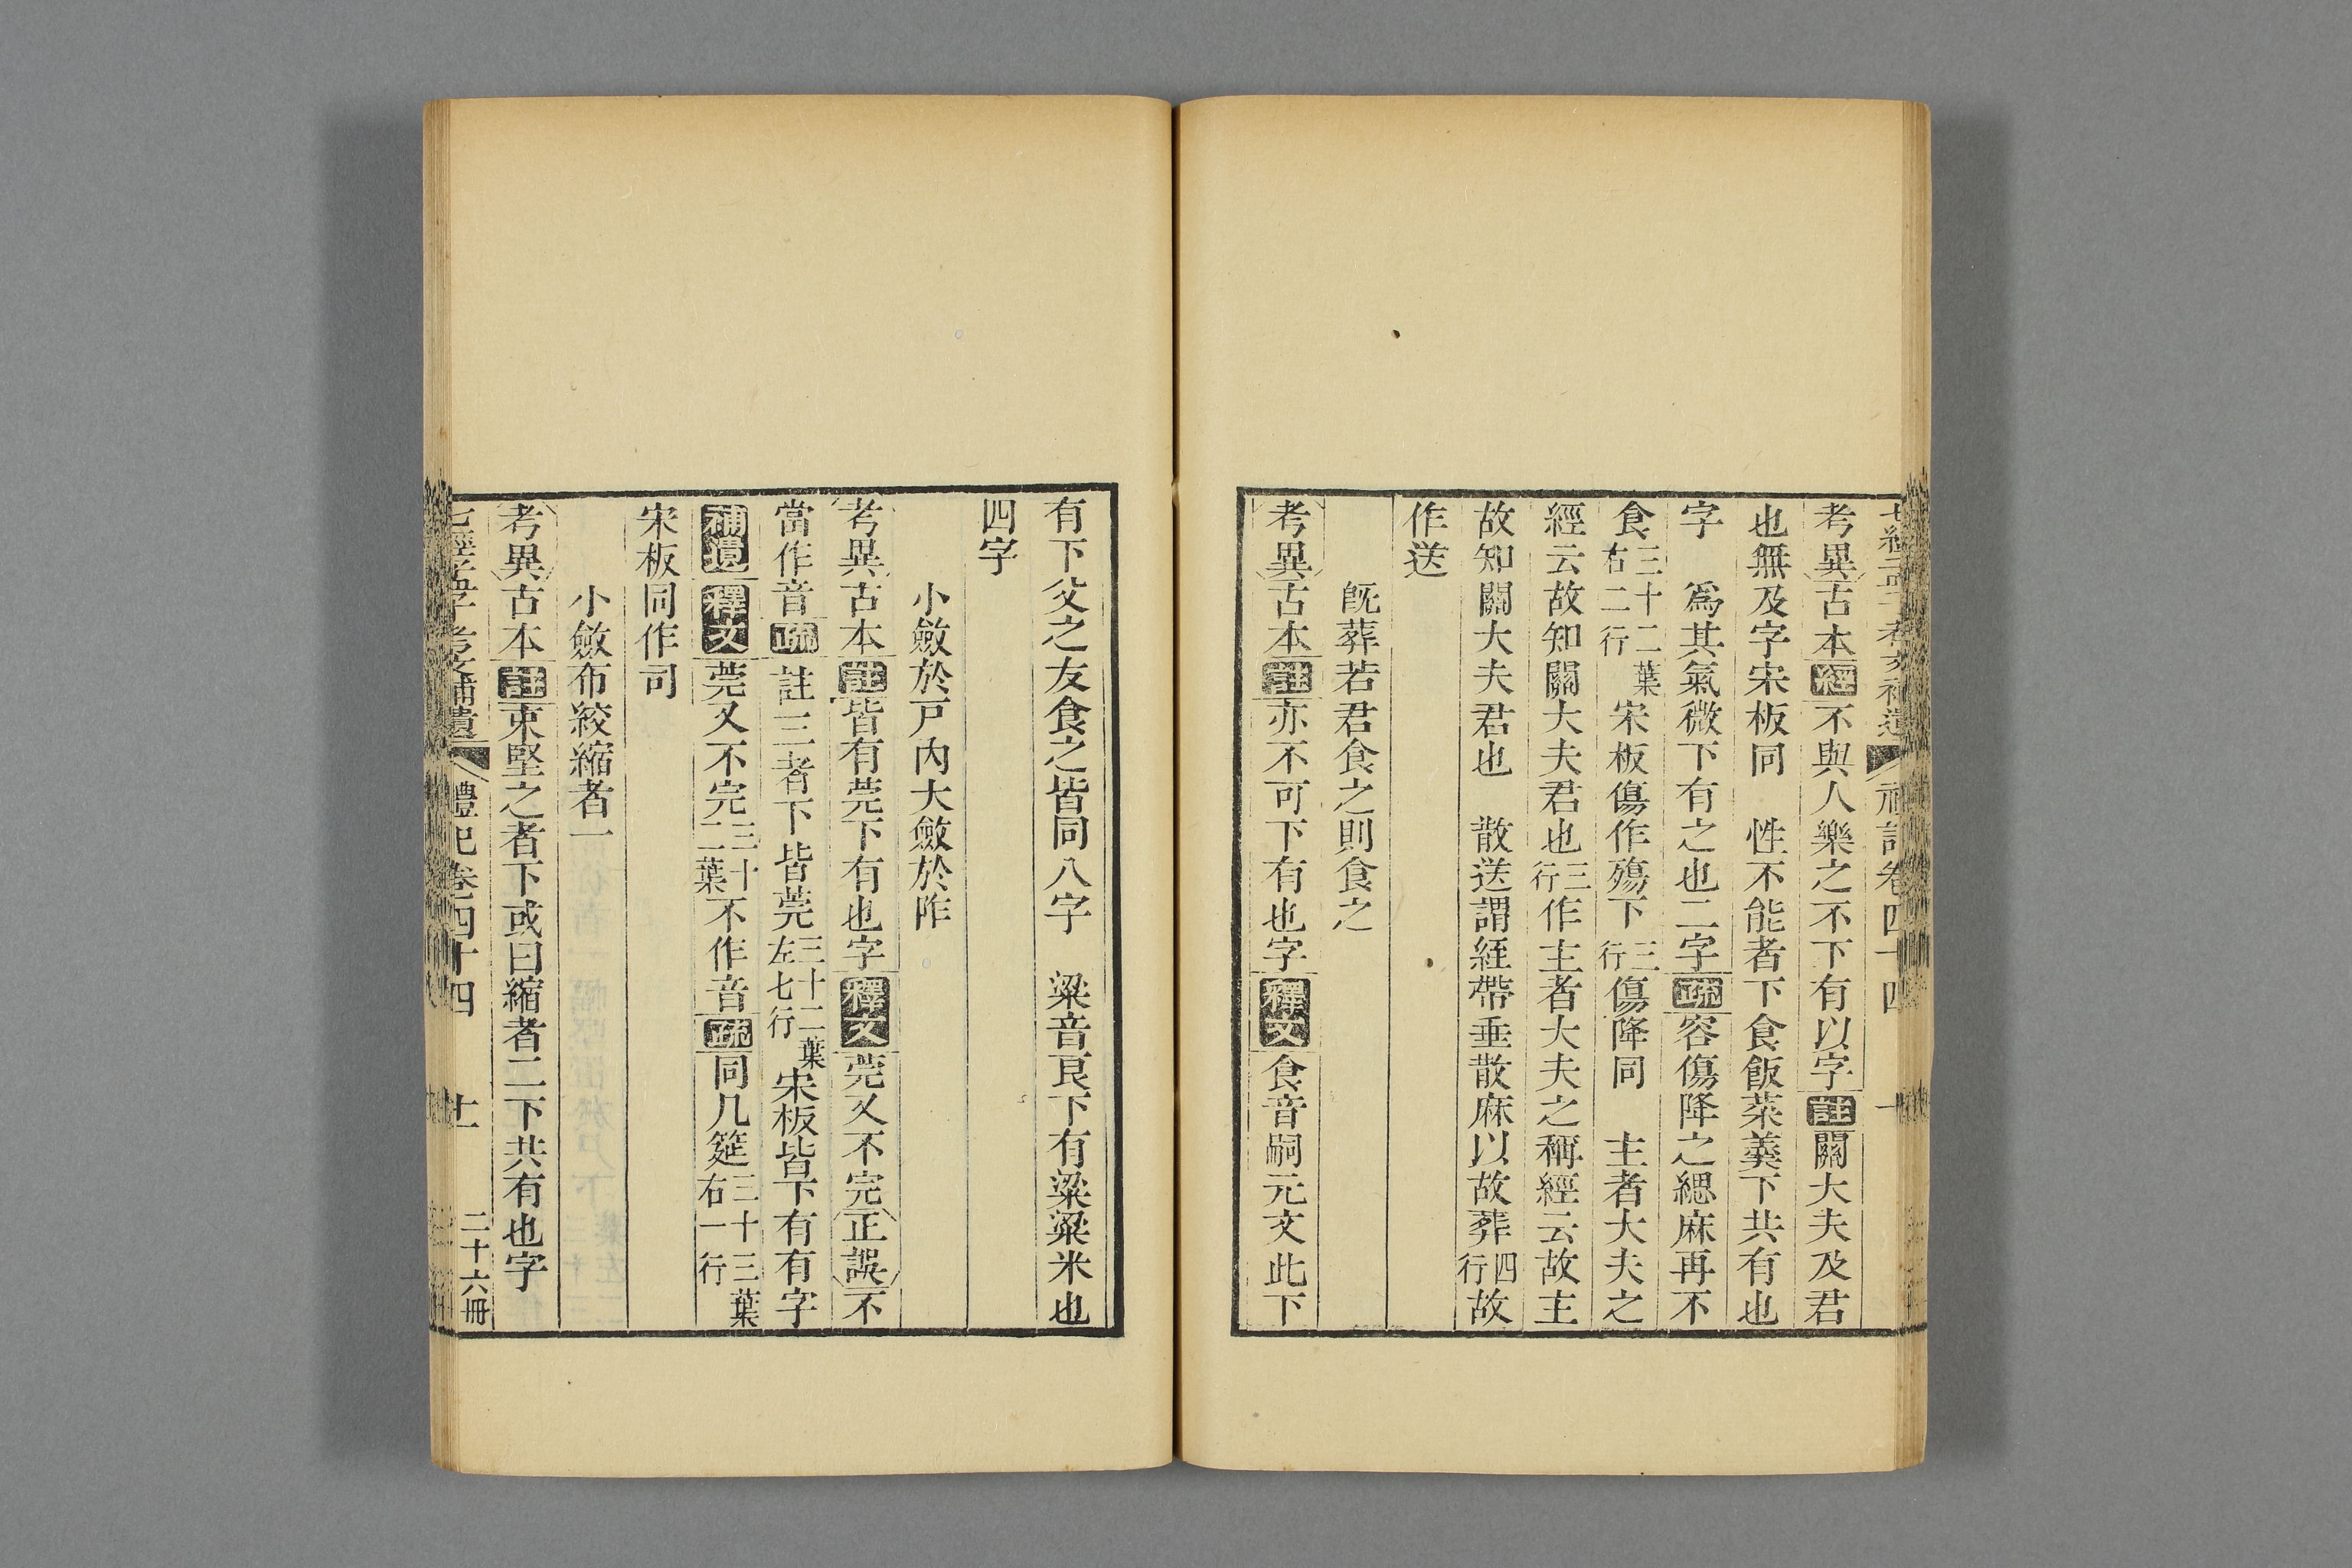 考異古本經不與人樂之不下有以字註關大夫及君
也無及字宋板同　性不能者下食飯菜羹下共有也
字　為其氣微下有之也二字疏容傷降之緦麻再不
食三十二葉右二行宋板傷作殤下三行傷降同　主者大夫之
經云故知關大夫君也三行作主者大夫之稱經云故主
故知關大夫君也　散送謂絰帶垂散麻以故葬四行故
作送
既葬若君食之則食之
考異古本註亦不可下有也字釋文食音嗣元文此下
有下父之友食之皆同八字　粱音良下有粱粱米也
四字
小斂於戸內大斂於阼
考異古本註皆有莞下有也字釋文莞又不完正誤不
當作音疏註三者下皆莞三十二葉左七行宋板皆下有有字
補遺釋文莞又不完三十二葉不作音疏同几筵三十三葉右一行
宋板同作司
小斂布絞縮者一
考異古本註束堅之者下或曰縮者二下共有也字
七經孟子考文補遺　禮記卷四十四　十一　二十六冊